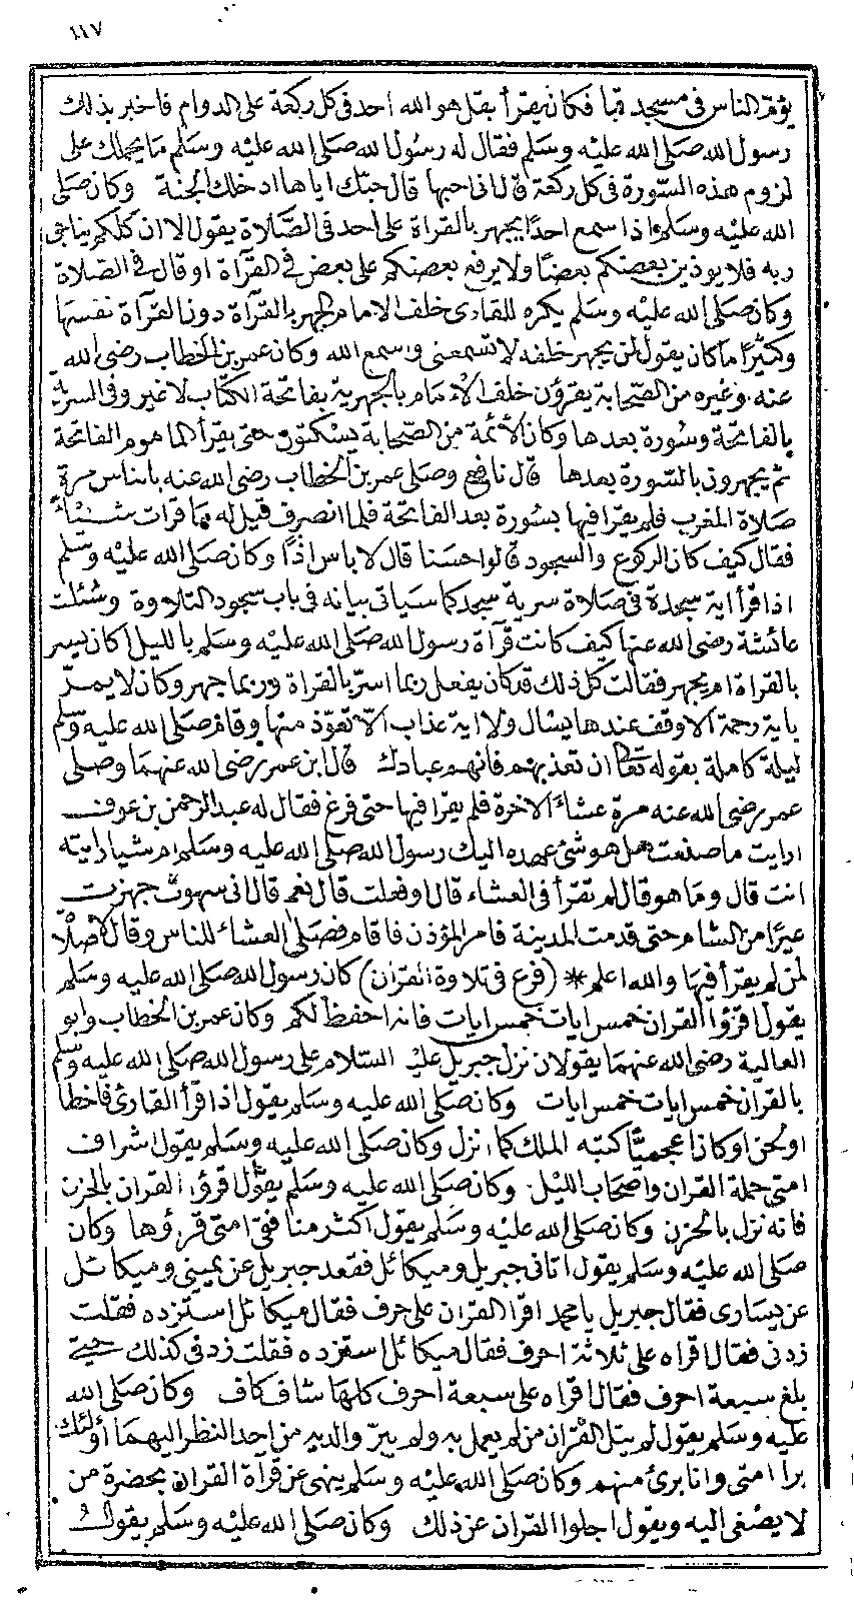 ١١٧
يؤم الناس فى مسجد قبا فكان يقرأ بقل هو الله احد فى كل ركعة على الدوام فاخبر بذلك
رسول الله صلى الله عليه وسلم فقال له رسول الله صلى الله عليه وسلم ما يحملك على
لزوم هذه السورة فى كل ركعة قال انى احبها قال حبك اياها ادخلك الجنة وكان صلى
الله عليه وسلم اذا سمع احدا يجهر بالقراة على احد فى الصلاة يقول الا ان كلكم يناجى
ربه فلا يوذين بعضكم بعضا ولا يرفع بعضكم على بعض فى القرآة او قال فى الصلاة
وكان صلى الله عليه وسلم يكره للقارى خلف الامام الجهر بالقرآة دون القرآة نفسها
وكثيرا ما كان يقول لمن يجهر خلفه لا تسمعنى وسمع الله وكان عمر بن الخطاب رضى الله
عنه وغيره من الصحابة يقرؤن خلف الامام بالجهرية بفاتحة الكتاب لا غير وفى السرية
بالفاتحة وسورة بعدها وكان الأئمة من الصحابة يسكتون حتى يقرأ الماموم الفاتحة
ثم يجهرون بالسورة بعدها قال نافع وصلى عمر بن الخطاب رضى الله عنه بالناس مرة
صلاة المغرب فلم يقرا فيها بسورة بعد الفاتحة فلما انصرف قيل له ما قرات شيئا
فقال كيف كان الركوع والسجود قالوا حسنا قال لا باس اذا وكان صلى الله عليه وسلم
اذا قرأ اية سجدة فى صلاة سرية سجد كما سياتى بيانه فى باب سجود التلاوة وسئلت
عائشة رضى الله عنها كيف كانت قرآة رسول الله صلى الله عليه وسلم بالليل اكان يسر
بالقراة ام يجهر فقالت كل ذلك قد كان يفعل ربما اسر بالقراة وربما جهر وكان لا يمر
باية رحمة الا وقف عندها يسال ولا اية عذاب الا تعوذ منها وقام صلى الله عليه وسلم
ليلة كاملة بقوله تعالى ان تعذبهم فانهم عبادك قال ابن عمر رضى الله عنهما وصلى
عمر رضى الله عنه مرة عشاء الاخرة فلم يقرا فيها حتى فرغ فقال له عبد الرحمن بن عوف
ارايت ما صنعت هل هو شئ عهده اليك رسول الله صلى الله عليه وسلم ام شيا رايته
انت قال وما هو قال لم تقرأ فى العشاء قال اوفعلت قال نعم قال انى سهوت جهزت
عيرا من الشام حتى قدمت المدينة فامر المؤذن فاقام فصلى العشاء للناس وقال لا صلاة
لمن لم يقرأ فيها والله اعلم * (فرع فى تلاوة القران) كان رسول الله صلى الله عليه وسلم
يقول اقرؤا القران خمس ايات خمس ايات فانه احفظ لكم وكان عمر بن الخطاب وابو
العالية رضى الله عنهما يقولان نزل جبريل عليه السلام على رسول الله صلى الله عليه وسلم
بالقران خمس ايات خمس ايات وكان صلى الله عليه وسلم يقول اذا قرأ القارئ فاخطا
او لحن او كان اعجميا كتبه الملك كما انزل وكان صلى الله عليه وسلم يقول اشراف
امتى حملة القران واصحاب الليل وكان صلى الله عليه وسلم يقول اقرؤا القران بالحزن
فانه نزل بالحزن وكان صلى الله عليه وسلم يقول اكثر منافقى امتى قرؤها وكان
صلى الله عليه وسلم يقول اتانى جبريل وميكائل فقعد جبريل عن يمينى وميكائل
عن يسارى فقال جبريل يا محمد اقرا القران على حرف فقال ميكائل استزده فقلت
زدنى فقال اقراه على ثلاثة احرف فقال ميكائل استزده فقلت زدنى كذلك حتى
بلغ سبعة احرف فقال اقراه على سبعة احرف كلها شاف كاف وكان صلى الله
عليه وسلم يقول لم يتل القران من لم يعمل به ولم يبر والديه من احد النظر اليهما اولئك
برا امنى وانا برئ منهم وكان صلى الله عليه وسلم ينهى عن قرآة القران بحضرة من
لا يصغى اليه ويقول اجلوا القران عن ذلك وكان صلى الله عليه وسلم يقول